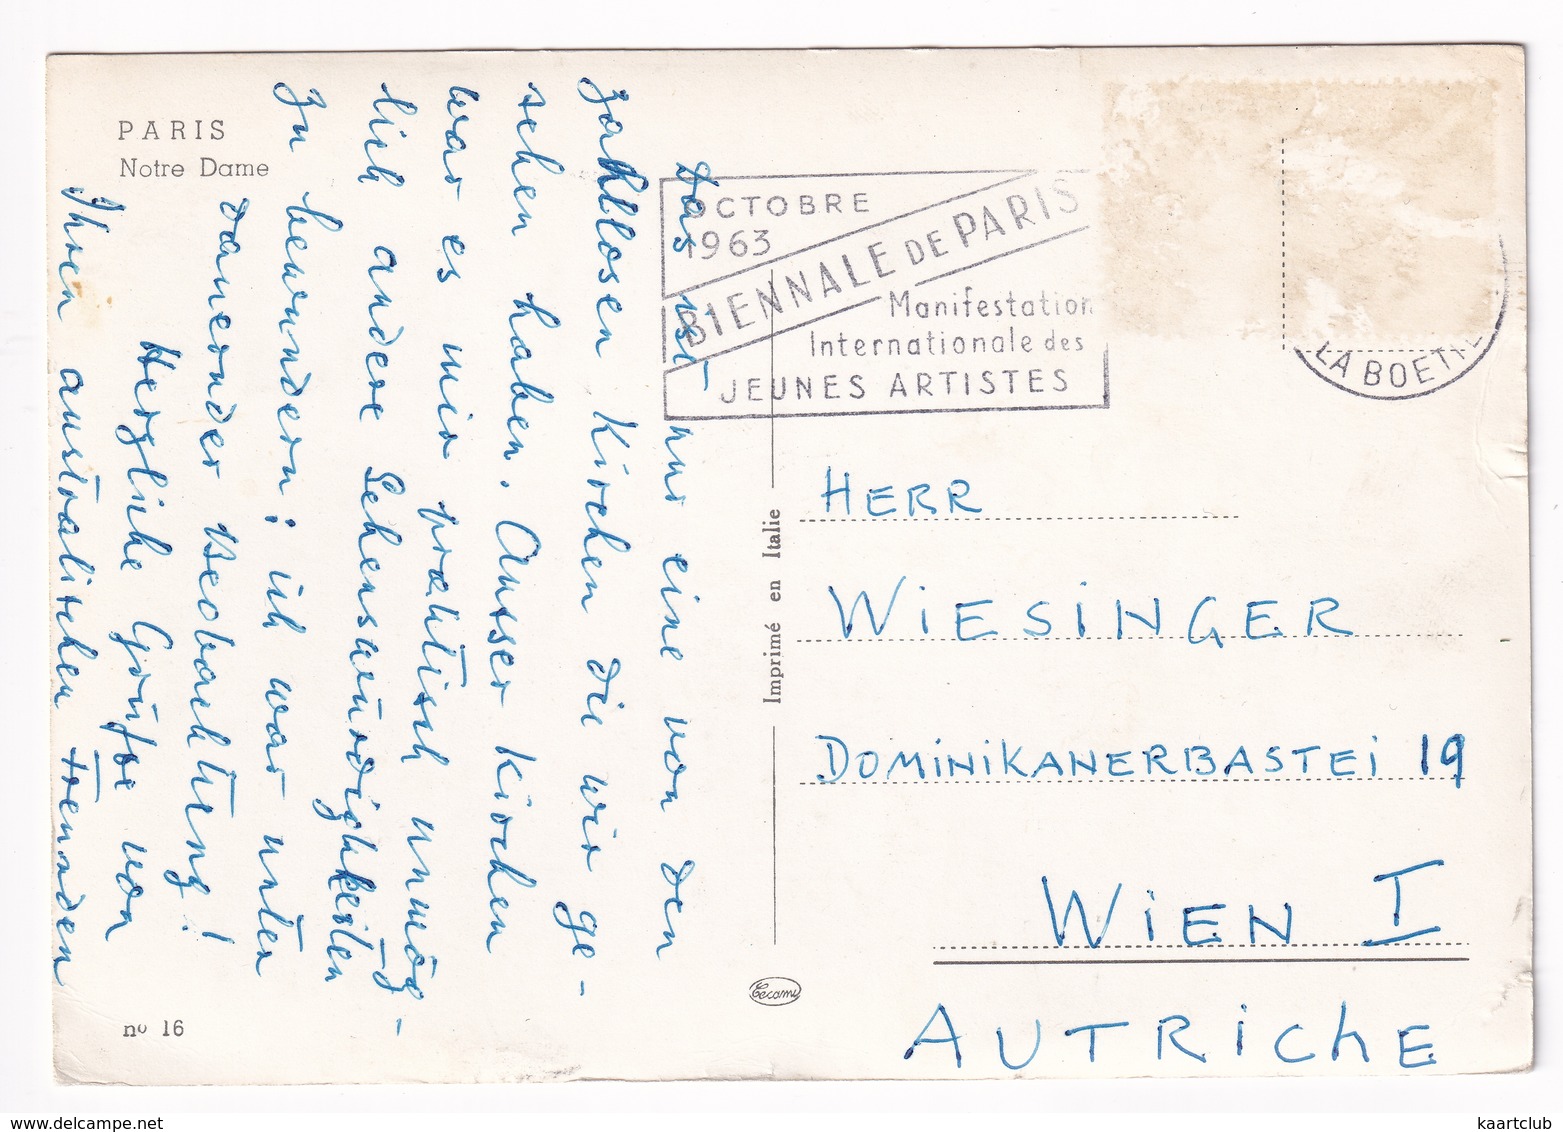 PARIS
Notre Dame
Das ist nur eine von den
zahllosen Kirchen die wir ge-
sehen haben. Ausser Kirchen
war es mir praktisch unmög-
lich andere Sehenswürdigkeiten
zu bewundern: ich war unter
dauernder Beobachtung!
Herzliche Grüße von
Ihren australischen Freunden
nº 16
OCTOBRE
1963
BIENNALE DE PARIS
Manifestation
Internationale des
JEUNES ARTISTES
LA BOETIE
Imprimé en Italie
Cecami
HERR
WIESINGER
DOMINIKANERBASTEI 19
WIEN I
AUTRICHE
kaartclub